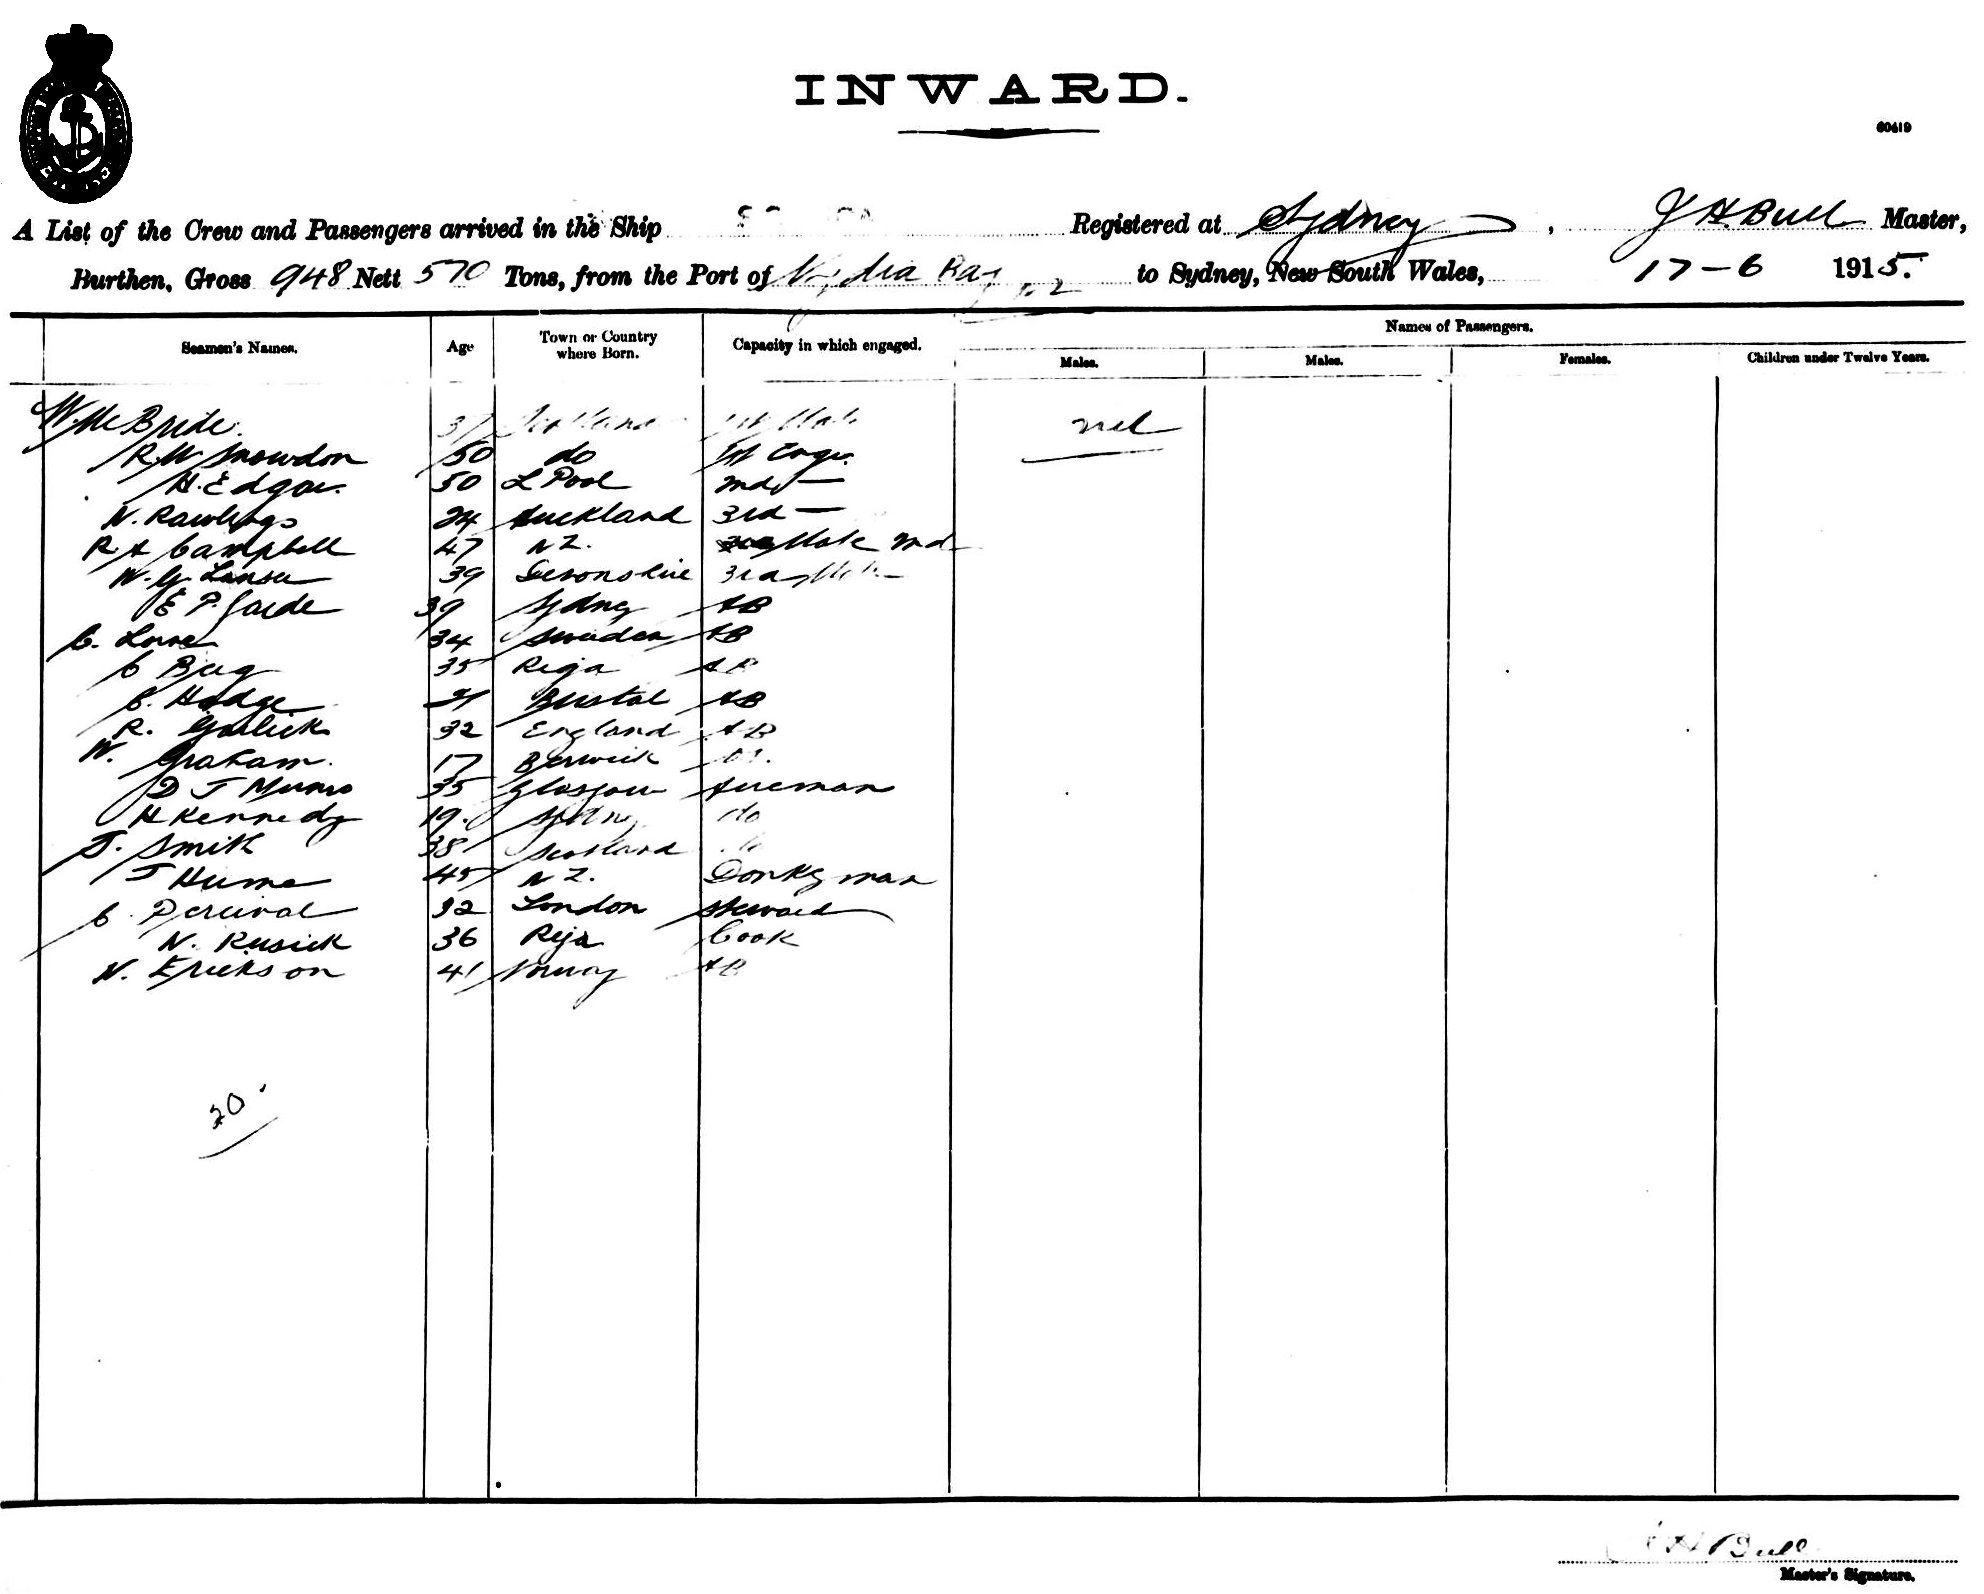 INWARD.
60419
A List of the Crew and Passengers arrived in the Ship Registered at Sydney, J H Bull Master,
Burthen, Gross 948 Nett 570 Tons, from the Port of Bay NZ to Sydney, New South Wales, 17-6 1915.
Seamen's Names. Age Town or Country where Born. Capacity in which engaged. Names of Passengers.
Males. Males. Females. Children under Twelve Years.
W McBride 37 Scotland 1st Mate nil
R W Snowdon 50 do 1st Engr.
H. Edgar. 50 L Pool 2nd —
N. Rawlings 24 Auckland 3rd —
R A Campbell 47 NZ. Mate 2nd
W. G. 39 Devonshire 3rd Mate
E P. 39 Sydney AB
C. 34 Sweden AB
C Berg 35 Riga AB
C. Hodge Bristol AB
R. Garlick 32 England AB
W. Graham. 17 Berwick
D J Munro 35 Glasgow Fireman
H Kennedy 19. Sydney do
J. Smith 38 Scotland do
J Hume 45 NZ. Donkyman
C Percival 32 London Steward
N. Rusick 36 Riga Cook
N. Erickson 41 Norway AB
20
J H Bull
Master's Signature.